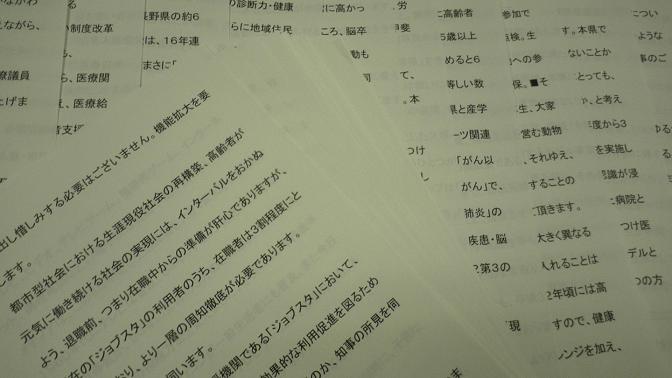 ながら、
療議員
上げま
制度改革
ら、医療関
え、医療給
長野県の約6
は、16年連
まさに「
の診断力・健康
らに地域住民
に高かっ
ころ、脳卒
労
て、
。本
つけ
に高齢者
5歳以上
めると6
等しい数
県と産学
ーツ関連
「がん以
がん」で、
肺炎」の
疾患・脳
第3の
「現
参加で
検。生
への参
保。■そ
生、大家
営む動物
、それゆえ、
することの
頂きます。
大きく異なる
入れることは
2年頃には高
すので、健康
ンジを加え、
す。本県で
ないことか
とっても、
、と考え
度から3
を実施し
認識が浸
病院と
つけ医
デルと
つの方
につい
ような
事のご
出し惜しみする必要はございません。機能拡大を要
します。
都市型社会における生涯現役社会の再構築、高齢者が
元気に働き続ける社会の実現には、インターバルをおかぬ
よう、退職前、つまり在職中からの準備が肝心でありますが、
在の「ジョブスタ」の利用者のうち、在職者は3割程度にと
おり、より一層の周知徹底が必要であります。
伺います。
機関である「ジョブスタ」において、
効果的な利用促進を図るため
のか、知事の所見を伺